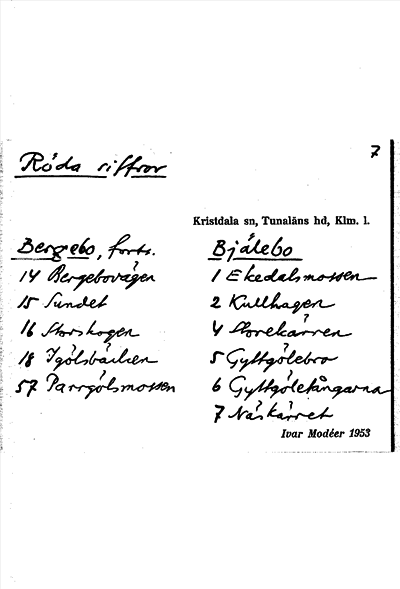 7
Röda siffror
Kristdala sn, Tunaläns hd, Klm. l.
Bergebo, forts.
14 Bergebovägen
15 Sundet
16 Storskogen
18 Igölsbäcken
57 Parrgölsmossen
Bjälebo
1 Ekedalsmossen
2 Kullhagen
4 Storekärren
5 Gyttgölebro
6 Gyttgöleängarna
7 Näskärret
Ivar Modéer 1953